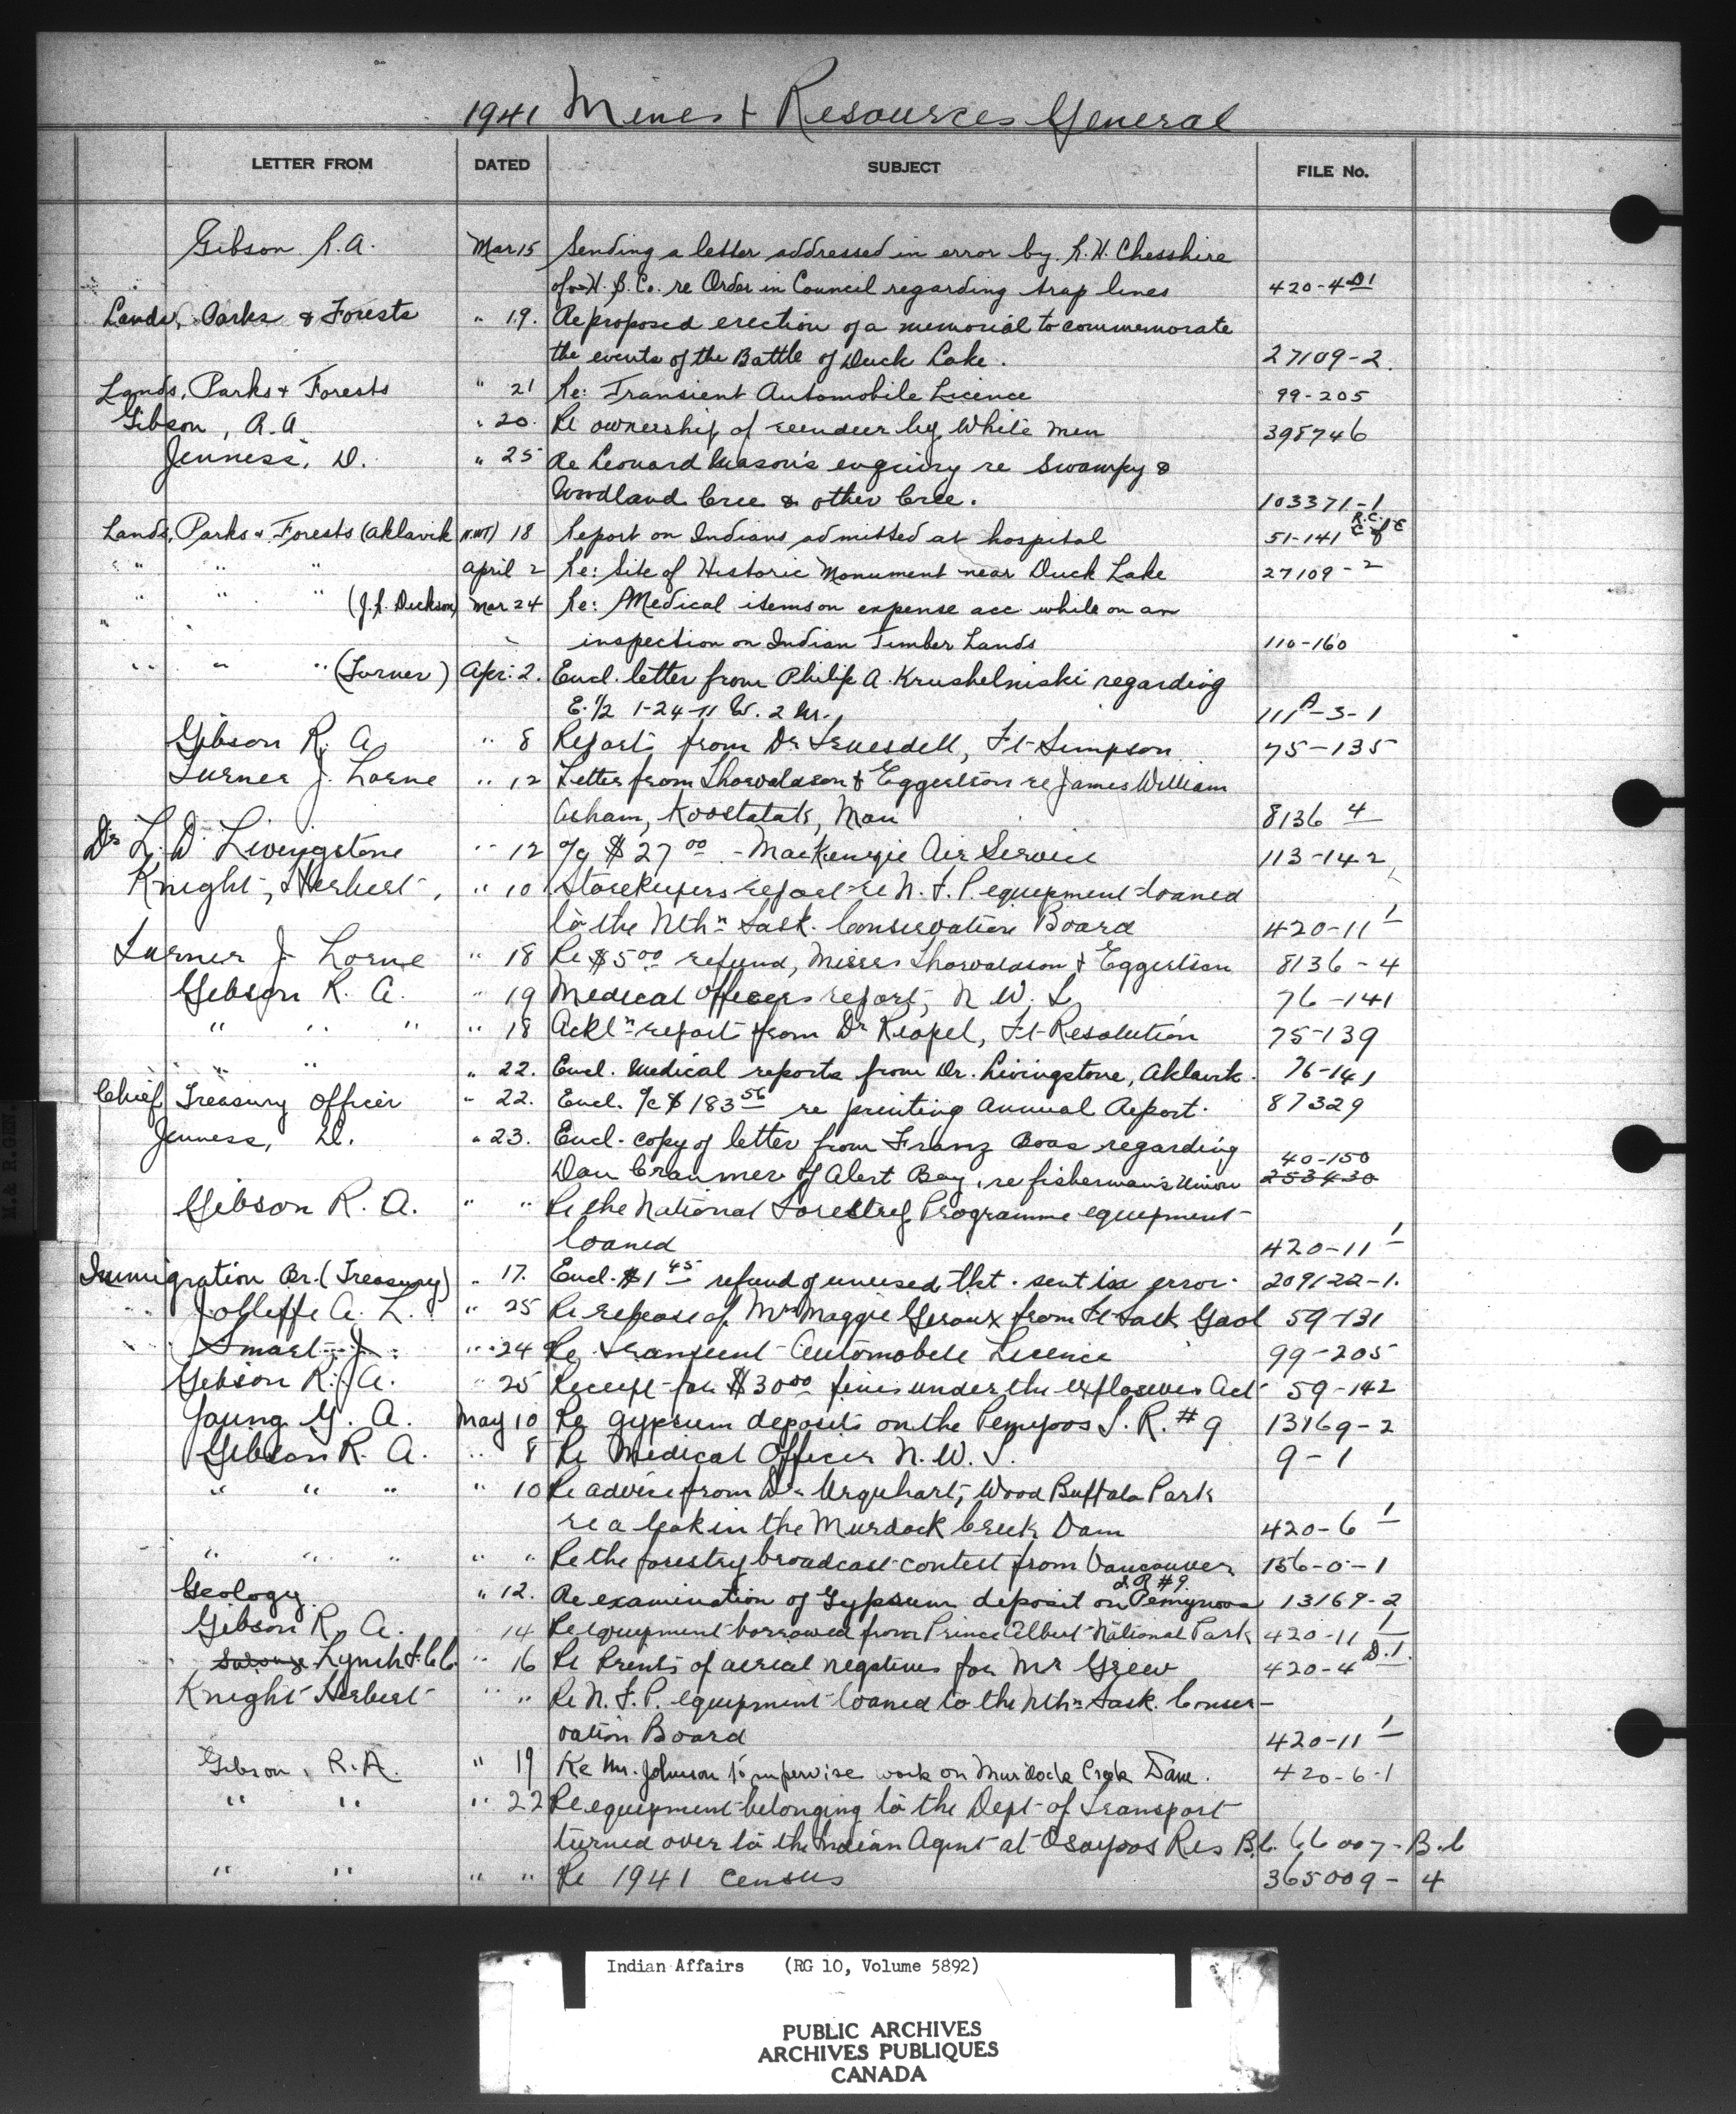 1941 Mines & Resources General
LETTER FROM DATED SUBJECT FILE No.
Gibson R.A. Mar 15 Sending a letter addressed in error by R.H. Chesshire
of H.B. Co. re Order in Council regarding trap lines 420-4 D1
Lands, Parks & Forests " 19. Re proposed erection of a memorial to commemorate
the events of the Battle of Duck Lake. 27109-2.
Lands, Parks & Forests " 21 Re: Transient Automobile Licence 99-205
Gibson, R.A. " 20. Re ownership of reindeer by White Men 398746
Jenness, D. " 25 Re Leonard Mason's enquiry re Swampy &
Woodland Cree & other Cree. 103371-1
Lands, Parks & Forests (Aklavik N.W.T) 18 Report on Indians admitted at hospital 51-141 R.C. C of E
" " " " April 2 Re: Site of Historic Monument near Duck Lake 27109-2
" " " (J.R. Dickson) Mar 24 Re: Medical items on expense acc while on an
" inspection on Indian Timber Lands 110-160
" " " (Turner) Apr. 2. Encl. letter from Philip A. Krushelniski regarding
E. 1/2 1-24-11 W. 2 Mr. 111A-3-1
Gibson R. A " 8 Report from Dr Truesdell, Ft Simpson 75-135
Turner J. Lorne " 12 Letter from Thorvaldson & Eggertson re James William
Asham, Koostatak, Man 8136 4
Dr L. D. Livingstone " 12 o/a $27 00 - MacKenzie Air Service 113-142
Knight, Herbert, " 10 Storekeepers report re N.F.P. equipment loaned
to the Nthn Sask. Conservation Board 420-11 1
Turner J. Lorne " 18 Re $5 00 refund, Messrs Thorvaldson & Eggertson 8136-4
Gibson R. A. " 19 Medical Officers report, N.W.T. 76-141
" " " " 18 Ackln report from Dr Riopel, Ft Resolution 75-139
" " " 22. Encl. Medical reports from Dr. Livingstone, Aklavik. 76-141
Chief Treasury Officer " 22. Encl. o/c $183 56 re printing Annual Report. 87329
Jenness, D. " 23. Encl. copy of letter from Franz Boas regarding
Dan Cranmer of Alert Bay, re fisherman's Union 40-150 253430
Gibson R. A. " " Re the National Forestry Programme equipment
loaned 420-11 1
Immigration Br. (Treasury) " 17. Encl. $1 45 refund of unused tkt. sent in error. 209122-1.
Jolleffe A. L. " 25 Re release of Mrs Maggie Geroux from Ft Sask Gaol 59-131
Smart J. " 24 Re transient Automobile Licence 99-205
Gibson R. A. " 25 Receipt for $30 00 fines under the explosives Act 59-142
Young G. A. May 10 Re gypsum deposits on the I. R. # 9 13169-2
Gibson R. A. " 8 Re Medical Officer N.W.T. 9-1
" " " " 10 Re advice from Dr Urquhart, Wood Buffalo Park
re a leak in the Murdock Creek Dam 420-6 1
" " " " " Re the forestry broadcast contest from Vancouver 156-0-1
Geology " 12. Re examination of Gypsum deposit on I R #9 13169-2
Gibson R. A. 14 Re equipment borrowed from Prince Albert National Park 420-11 1
Lynch F.C.C. " 16 Re Prents of aerial negatives for Mr Grew 420-4 D.1.
Knight Herbert " " Re N.F.P. equipment loaned to the Nthn Sask. Conser-
vation Board 420-11 1
Gibson, R.A. " 19 Re Mr. Johnson to supervise work on Murdock Creek Dam. 420-6-1
" " " 22 Re equipment belonging to the Dept of Transport
turned over to the Indian Agent at Osoyoos Res B.C. 66007-B.C
" " " " Re 1941 Census 365009-4
M. & R. GEN.
Indian Affairs (RG 10, Volume 5892)
PUBLIC ARCHIVES
ARCHIVES PUBLIQUES
CANADA